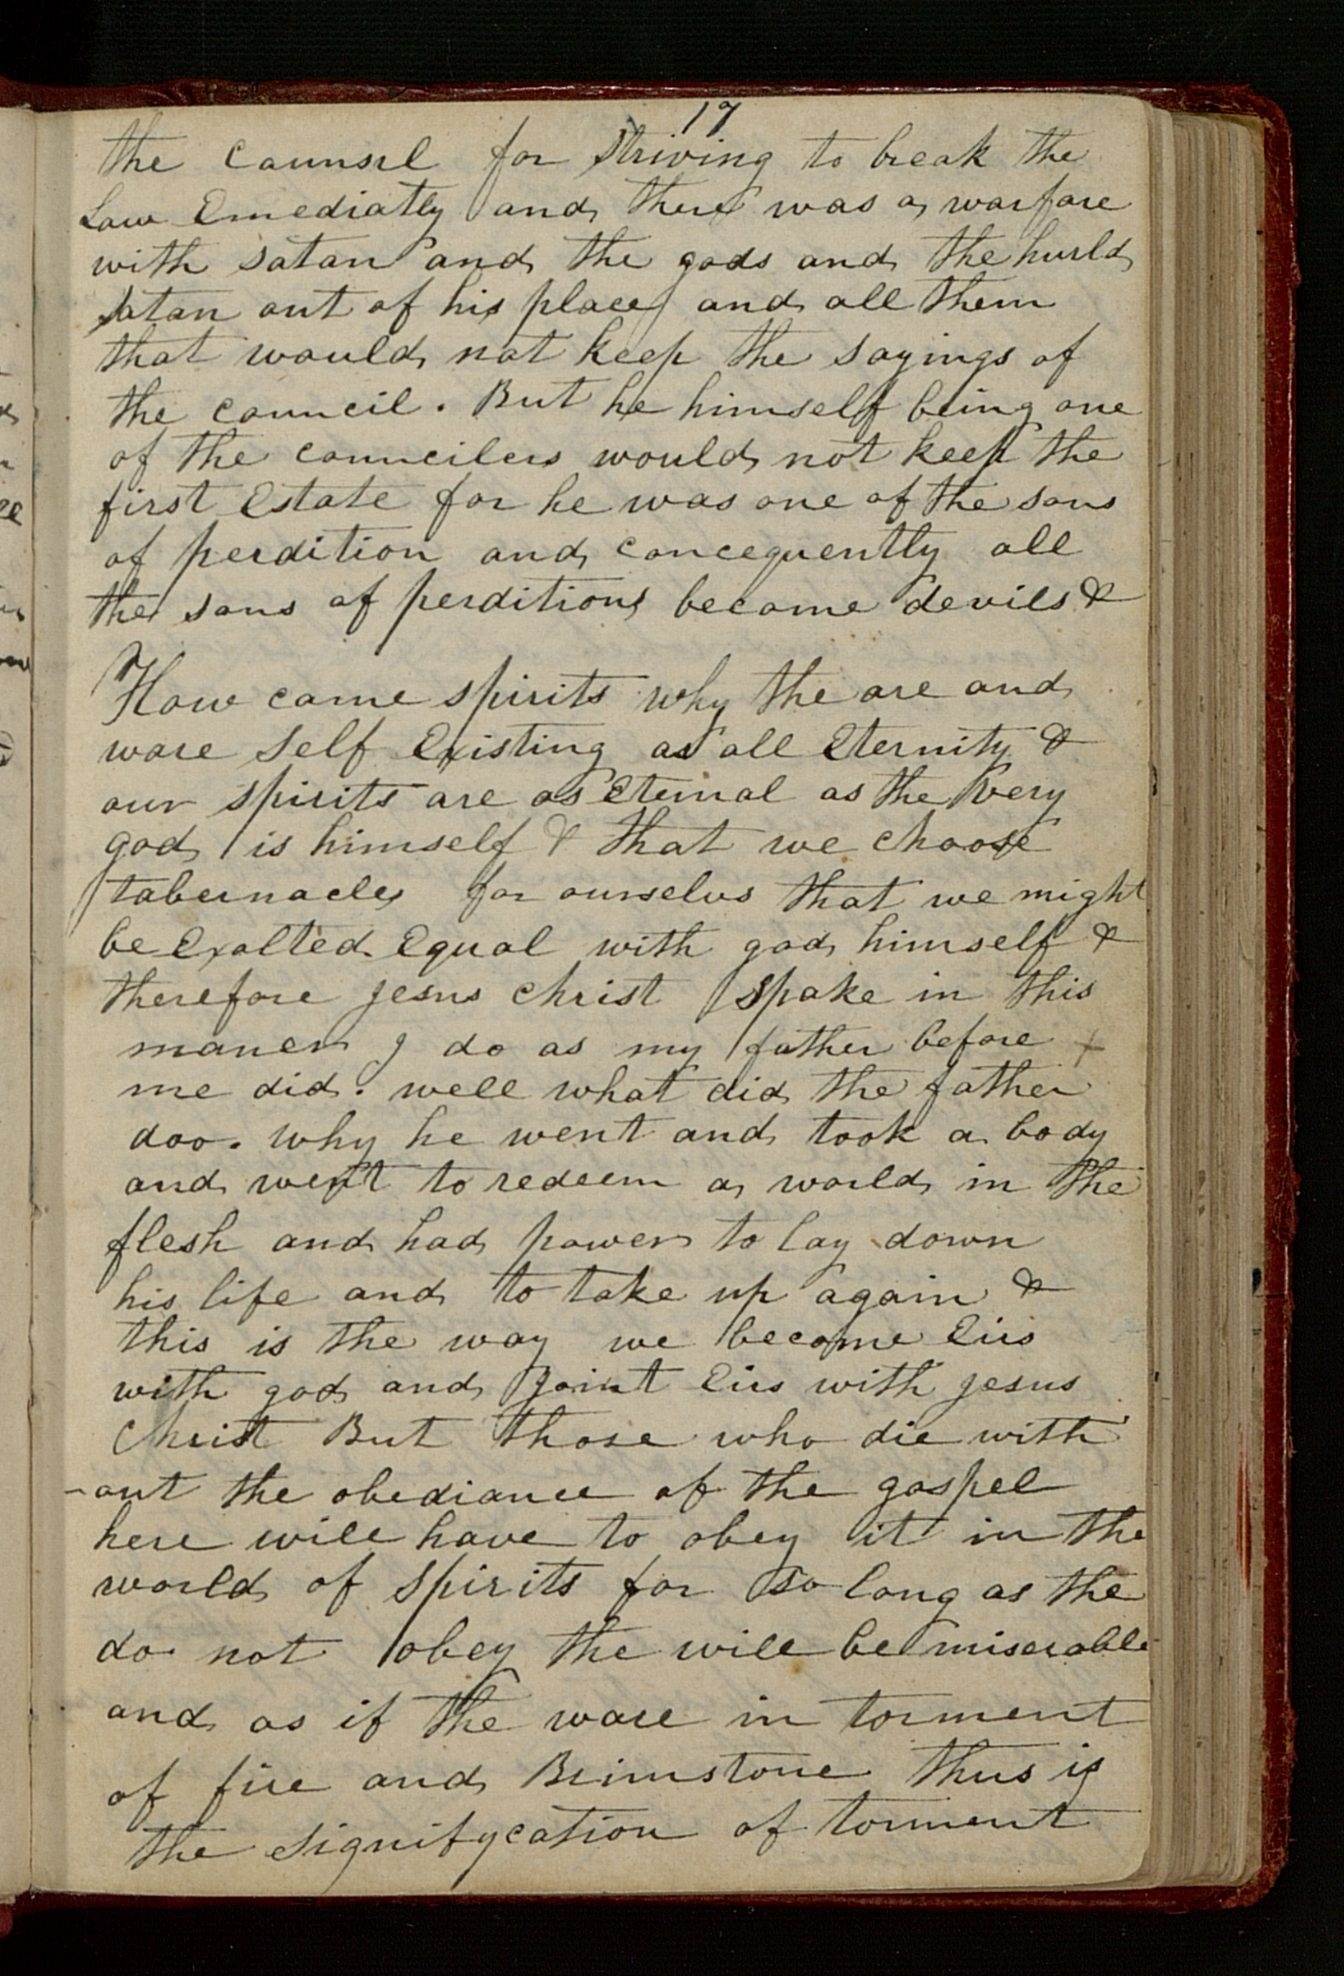 17
the counsil for striving to break the
Law Emediatly and there was a warfare
with satan and the gods and the hurld
satan out of his place and all them
that would not keep the sayings of
the council. But he himself being one
of the councilers would not keep the
first Estate for he was one of the sons
of perdition and concequently all
the sons of perditions become devils &
How came spirits why the are and
ware self Existing as all Eternity &
our spirits are as Eternal as the very
god is himself & that we choose
tabernacles for ourselvs that we might
be Exalted Equal with god himself &
therefore jesus christ spake in this
maner I do as my father before +
me did. well what did the father
doo. why he went and took a body
and went to redeem a world in the
flesh and had power to lay down
his life and to take up again &
this is the way we become Eirs
with god and joint Eirs with jesus
Christ But those who die with
-out the obediance of the gospel
here will have to obey it in the
world of spirits for so long as the
do not obey the will be miserable
and as if the ware in torment
of fire and Brimstone thus is
the signifycation of torment